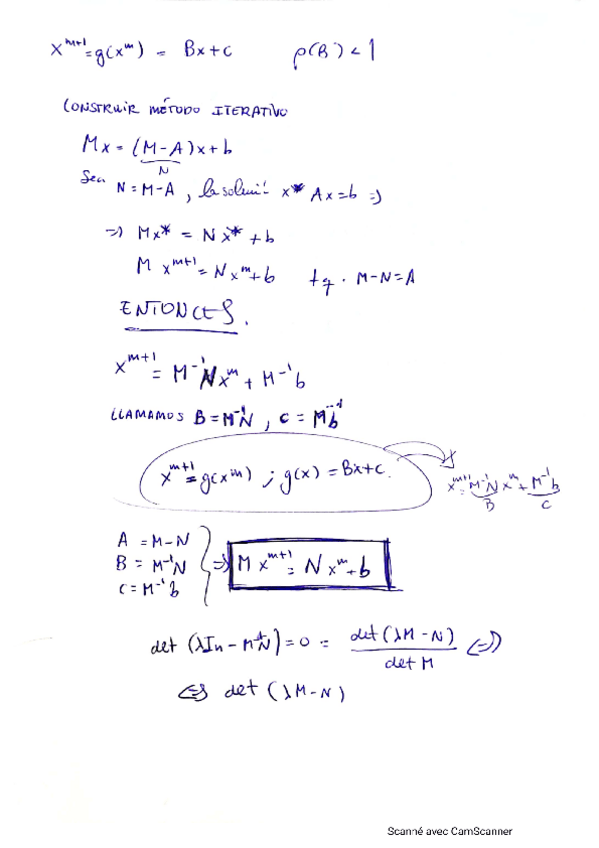 x^{m+1} = g(x^m) = Bx + c    ρ(B) < 1
CONSTRUIR MÉTODO ITERATIVO
Mx = (M-A)x + b
N
Sea N = M-A , la solució x* Ax = b ⇒
⇒ Mx* = Nx* + b
M x^{m+1} = Nx^m + b    tq. M-N = A
ENTONCES.
x^{m+1} = M^{-1}Nx^m + M^{-1}b
LLAMAMOS B = M^{-1}N , c = Mb^{-1}
x^{m+1} = g(x^m) ; g(x) = Bx + c.
x^{m+1} = M^{-1}N x^m + M^{-1}b
B    C
A = M-N
B = M^{-1}N
C = M^{-1}b
⇒ M x^{m+1} = N x^m + b
det (λIn - M^{-1}N) = 0 = det(λM - N) / det M ⇔
⇔ det (λM - N)
Scanné avec CamScanner